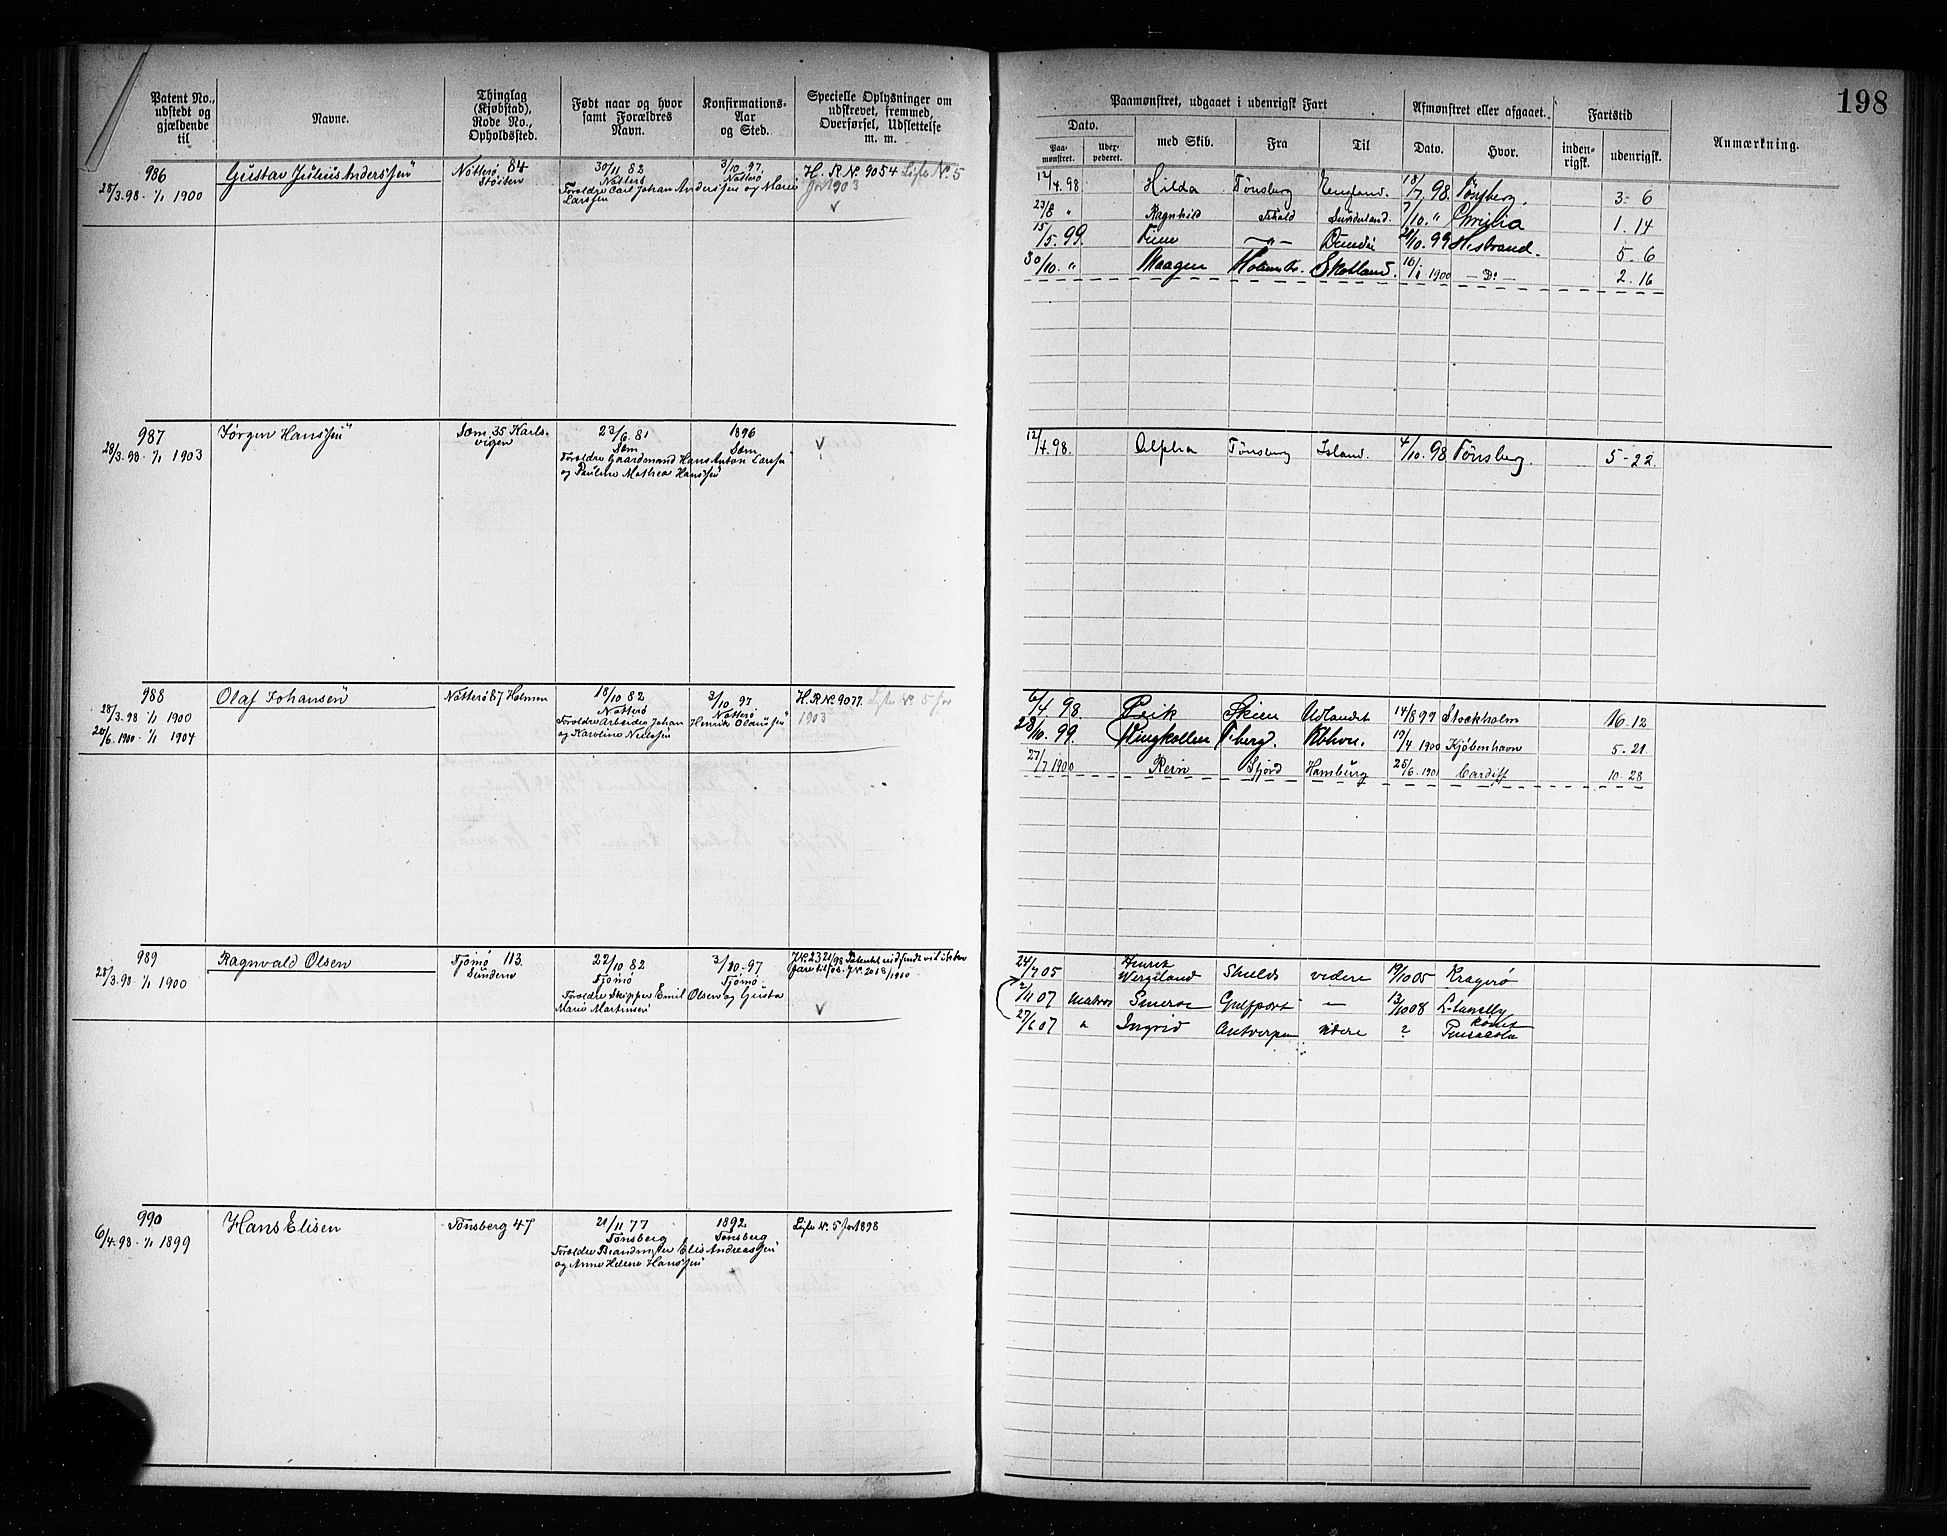 198
Patent No., udstedt og gjældende til
Navne.
Thinglag (Kjøbstad), Rode No., Opholdssted.
Født naar og hvor samt Forældres Navn.
Konfirmations-Aar og Sted.
Specielle Oplysninger om udskrevet, fremmed, Overførsel, Udslettelse m. m.
Paamønstret, udgaaet i udenrigsk Fart
Afmønstret eller afgaaet.
Fartstid
Anmærkning.
Dato.
med Skib.
Fra
Til
Dato.
Hvor.
inden-rigsk.
udenrigsk.
Paa-mønstret.
986
28/3.98 - 1/1 1900
Gustav Julius Anderssen
Nøtterø 84
30/11 82
Nøtterø
Forældre Carl Johan Anderssen og Marie Larssen
3/10.97.
Nøtterø
H. R. No. 9054 Liste No. 5
for 1903
12/4.98 Hilda Tønsberg England. 18/7.98. Tønsberg. 3-6
23/8 " Ragnhild Sunderland. 7/10. " 1.14
15/5.99. — " — 99 5-6
30/10. " Maagen Skotland. 1900 — Do — 2.16
987
28/3.98 - 1/1 1903
Jørgen Hanssen
Sæm. 35 Karls-
vigen
23/6.81
Sæm
Forældre Gaardmand Hans Anton Larsen
og Pauline Mathea Hanssen
1896
Sæm
12/4.98. Alpha Tønsberg Island. 4/10.98 Tønsberg. 5-22.
988
28/3.98 1/1 1900
1900 - 1/1 1904
Olaf Johansen
Nøtterø 87 Holmen
18/10 82
Nøtterø
Forældre Arbeider Johan Henrik Olaussen
og Karoline Neilssen
3/10 97
Nøtterø
H. R No. 9077. Liste No. 5 for
1903
6/4.98. Skien Udlandet 14/8 99 Stockholm 16.12
28/10.99. Ringkollen Tberg. Kbhvn. 19/4 1900 Kjøbenhavn 5-21
27/7 1900 Rein Sfjord Hamburg 25/6.1901 Cardiff 10.28
989
28/3.98 - 1/1 1900
Ragnvald Olsen
Tjømø 113.
Sundene
22/10 82
Tjømø
Forældre Skipper Emil Olsen og Gusta
Marie Martinsen
3/10-97.
Tjømø
24/7 05 Henrik Wergeland Shields videre 19/10 05 Kragerø
2/11 07 Matros Gulfport — 13/10 08 Llanelly
27/6 07 " Ingrid Antwerpen videre ? Pensacola
990
6/4.98 - 1/1 1899
Hans Elisen
Tønsberg 47
21/11 77
Tønsberg
Forældre Brandmester Elis Andreassen
og Anne Helene Hanssen
1892
Tønsberg
Liste No. 5 for 1898